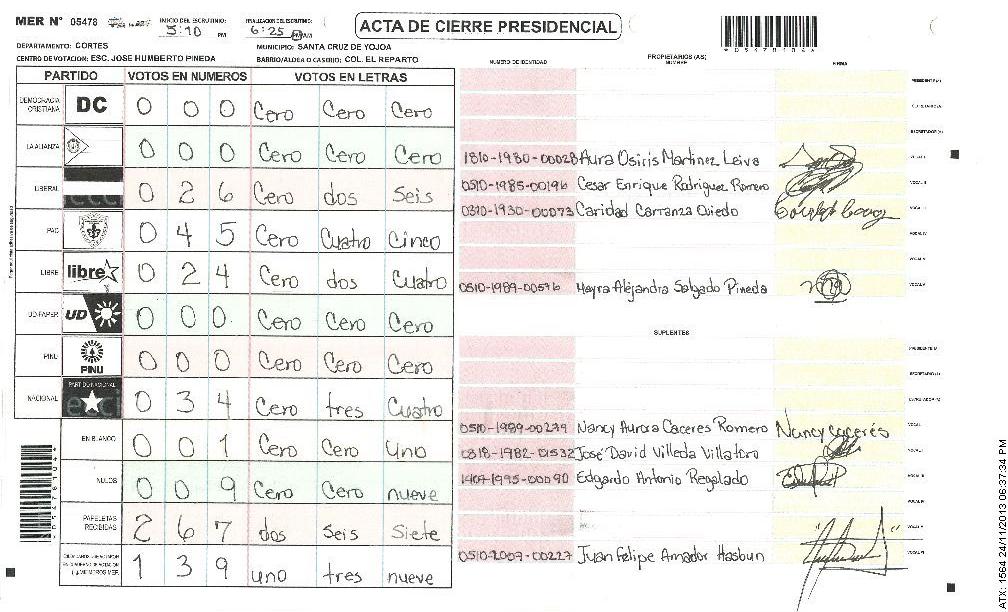 MER N° 05478
INICIO DEL ESCRUTINIO: 5:10 PM
FINALIZACION DEL ESCRUTINIO: 6:25 PM AM
ACTA DE CIERRE PRESIDENCIAL
DEPARTAMENTO: CORTES
MUNICIPIO: SANTA CRUZ DE YOJOA
CENTRO DE VOTACION: ESC. JOSE HUMBERTO PINEDA
BARRIO/ALDEA O CASERIO: COL. EL REPARTO
PARTIDO VOTOS EN NUMEROS VOTOS EN LETRAS
DEMOCRACIA CRISTIANA DC 0 0 0 Cero Cero Cero
LA ALIANZA 0 0 0 Cero Cero Cero
LIBERAL 0 2 6 Cero dos Seis
PAC 0 4 5 Cero Cuatro Cinco
LIBRE libre 0 2 4 Cero dos Cuatro
UD-FAPER UD 0 0 0 Cero Cero Cero
PINU PINU 0 0 0 Cero Cero Cero
NACIONAL PARTIDO NACIONAL 0 3 4 Cero tres Cuatro
EN BLANCO 0 0 1 Cero Cero Uno
NULOS 0 0 9 Cero Cero nueve
PAPELETAS RECIBIDAS 2 6 7 dos Seis Siete
1 3 9 uno tres nueve
NUMERO DE IDENTIDAD
PROPIETARIOS (AS)
NOMBRE
FIRMA
1810-1980-00028 Aura Osiris Martinez Leiva
0510-1985-00196 Cesar Enrique Rodriguez Romero
0310-1930-00073 Caridad Carranza Oviedo
0510-1989-00576 Mayra Alejandra Salgado Pineda
SUPLENTES
0510-1989-00279 Nancy Aurora Caceres Romero Nancy caceres
0818-1982-01532 José David Villeda Villatoro
1407-1995-00090 Edgardo Antonio Regalado
0510-2007-00227 Juan Felipe Amador Hasbun
ATX: 1564 24/11/2013 06:37:34 PM